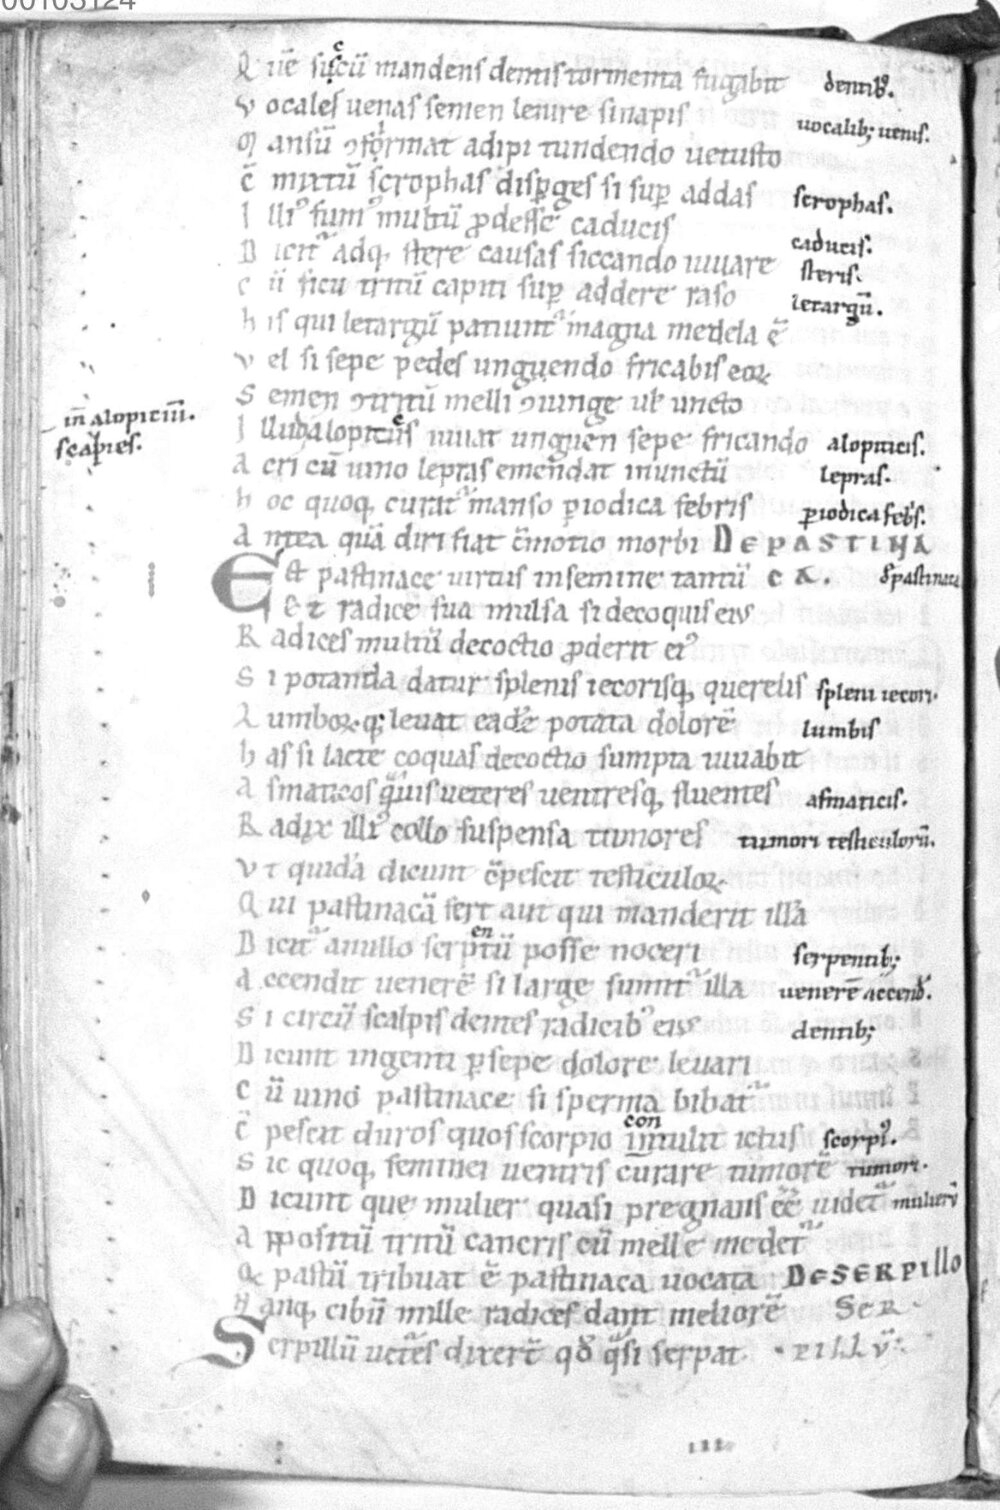 00103124
Q uẽ succũ mandens dentis tormenta fugabit dentibꝰ.
V ocales uenas semen lenire sinapis uocalibꝫ uenis.
M ansũ ꝯformat adipi tundendo uetusto
C̃ mixtũ scrophas disꝑges si suꝑ addas scrophas.
I lliꝰ fumꝰ multũ ꝓdesse caducis caducis.
D icitᷣ adqꝫ stere causas siccando iuuare steris.
C ũ ficu tritũ capiti suꝑ addere raso letargũ.
h is qui letargũ patiuntᷣ magna medela ẽ
V el si sepe pedes unguendo fricabis eoꝝ
S emen ꝯtritũ melli ꝯiunge ul' uncto
iñ alopitiũ.
I llud alopitiis iuuat unguen sepe fricando alopiticis.
scapies.
A cri cũ uino lepras emendat inunctũ lepras.
h oc quoqꝫ curatᷣ manso ꝑiodica febris ꝑiodica feb's.
A ntea quã diri fiat c̃motio morbi DE PASTINA
E st pastinace uirtus in semine tantũ CA. d' pastinaca
S et radice sua mulsa si decoquis eius
R adices multũ decoctio ꝓderit eiꝰ
S i potanda datur splenis iecorisqꝫ querelis spleni iecori.
L umboꝝqꝫ leuat eadẽ potata dolorẽ lumbis
h as si lacte coquas decoctio sumpta iuuabit
A smaticos quis ueteres uentresqꝫ fluentes asmaticis.
R adix illiꝰ collo suspensa tumores tumori testiculorũ.
V t quidã dicunt c̃pescit testiculoꝝ
Q ui pastinacã fert aut qui manderit illã
D icitᷣ a nullo serpentũ posse noceri serpentibꝫ
A ccendit uenerẽ si large sumitᷣ illa uenerẽ accend'.
S i circũ scalpis dentes radicibꝰ eius dentibꝫ
D icunt ingenti ꝑ sepe dolore leuari
C ũ uino pastinace si sperma bibatᷣ
C̃ pescit duros quos scorpio intulit ictus scorpꝰ.
con
S ic quoqꝫ feminei uentris curare tumorẽ tumori.
D icunt que mulier quasi pregnans ẽẽ uidetᷣ mulierũ
A ppositũ tritũ cancris cũ melle medetᷣ
Q pastũ tribuat ẽ pastinaca uocata DE SERPILLO
N anqꝫ cibũ mille radices dant meliorẽ SER
S erpillũ uetẽs dixerẽ qđ quasi serpat. PILLŨ.